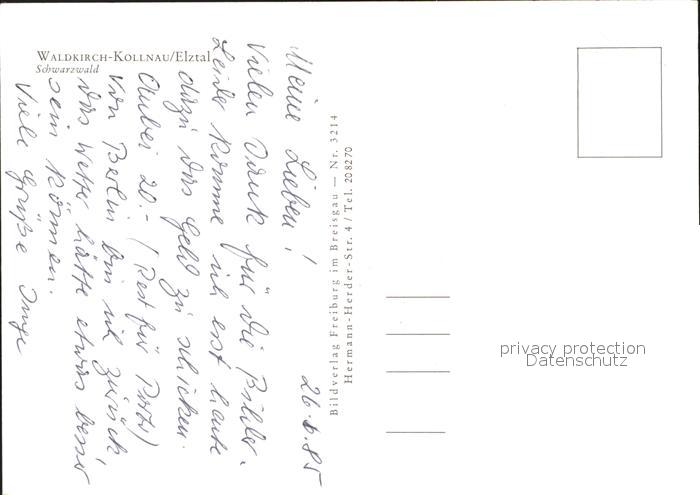 WALDKIRCH-KOLLNAU/ELZTAL
Schwarzwald
26.6.85
Meine Lieben!
Vielen Dank für die Bilder.
Leider komme ich erst heute
dazu das Geld zu schicken.
Anbei 20.- (Rest für Porto)
Von Berlin bin ich zurück
das Wetter hätte etwas besser
sein können.
Viele Grüße Inge
Bildverlag Freiburg im Breisgau — Nr. 3214
Hermann-Herder-Str. 4 / Tel. 208270
privacy protection
Datenschutz